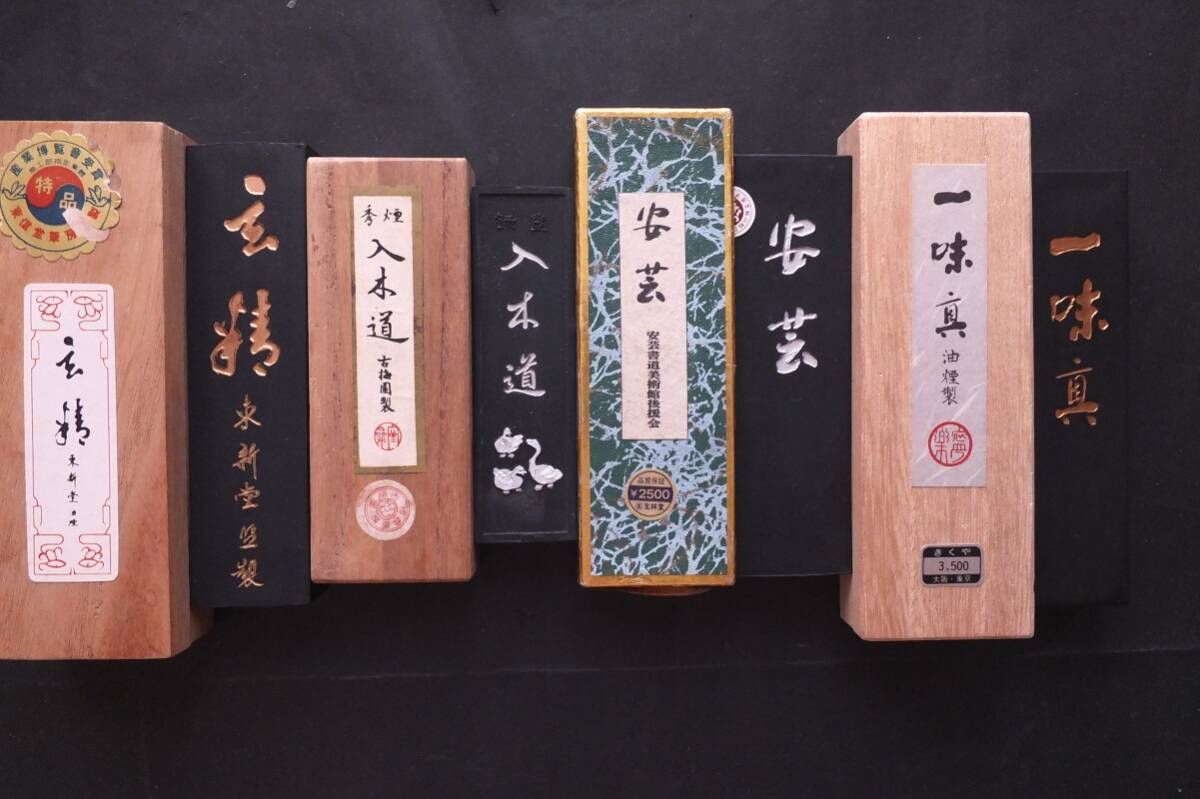 産業博覧會受賞
特品
玄精
東新堂
玄精
東新堂監製
秀煙
入木道
古梅園製
入木道
安芸
安芸書道美術館後援会
品質保証
¥2500
玄林堂
安芸
一味真
油煙製
きくや
3,500
大阪・東京
一味真